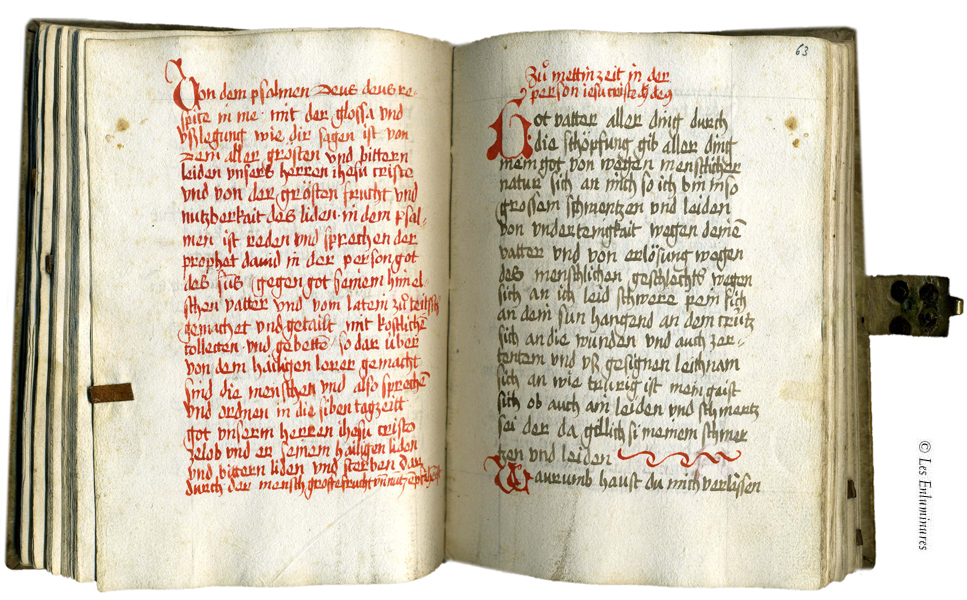 Von dem psalmen Deus deus re-
spice in me · mit der glossa vnd
vßlegung wie dir sagen ist von
Dem aller grösten vnd bittern
leiden vnsers herren ihesu cristi
vnd von der grösten frucht vnd
nutzberkait des liden · in dem psal-
men ist reden vnd sprechen der
prophet dauid in der person got
des suns gegen got seinem himel
schen vatter vnd vom latein zů teütsch
gemachet vnd getailt mit kostlichē
collecten vnd gebettē so dar über
von dem häiligen lerer gemacht
sind die menschen vnd also sprechē
vnd ordnen in die siben tagzeitt
got vnserm herren ihesu cristo
zelob vnd er seinem häiligen liden
vnd bittern liden vnd sterben Dar
durch der mensch groste frucht vnd nutz
63
Zů mettinzeit in der
person iesu
Got vatter aller ding durch
die schöpfung gib aller ding
mein got von wegen menschlicher
natur sich an mich so ich bin in so
grossem schmertzen vnd leiden
von vndertenigkait wegen deinē
vatter vnd von erlösung wegen
des menschlichen geschlechts wegen
sich an ich leid schwere pein sich
an dem sun hangend an dem crütz
sich an die wunden vnd auch zer-
tentem vnd vß gesignen leichnam
sich an wie trurig ist mein gaist
sich ob auch ain leiden vnd schmertz
sei der da gelich si meinem schmer
tzen vnd leiden
Waurumb haust du mich verlässen
© Les Enluminures